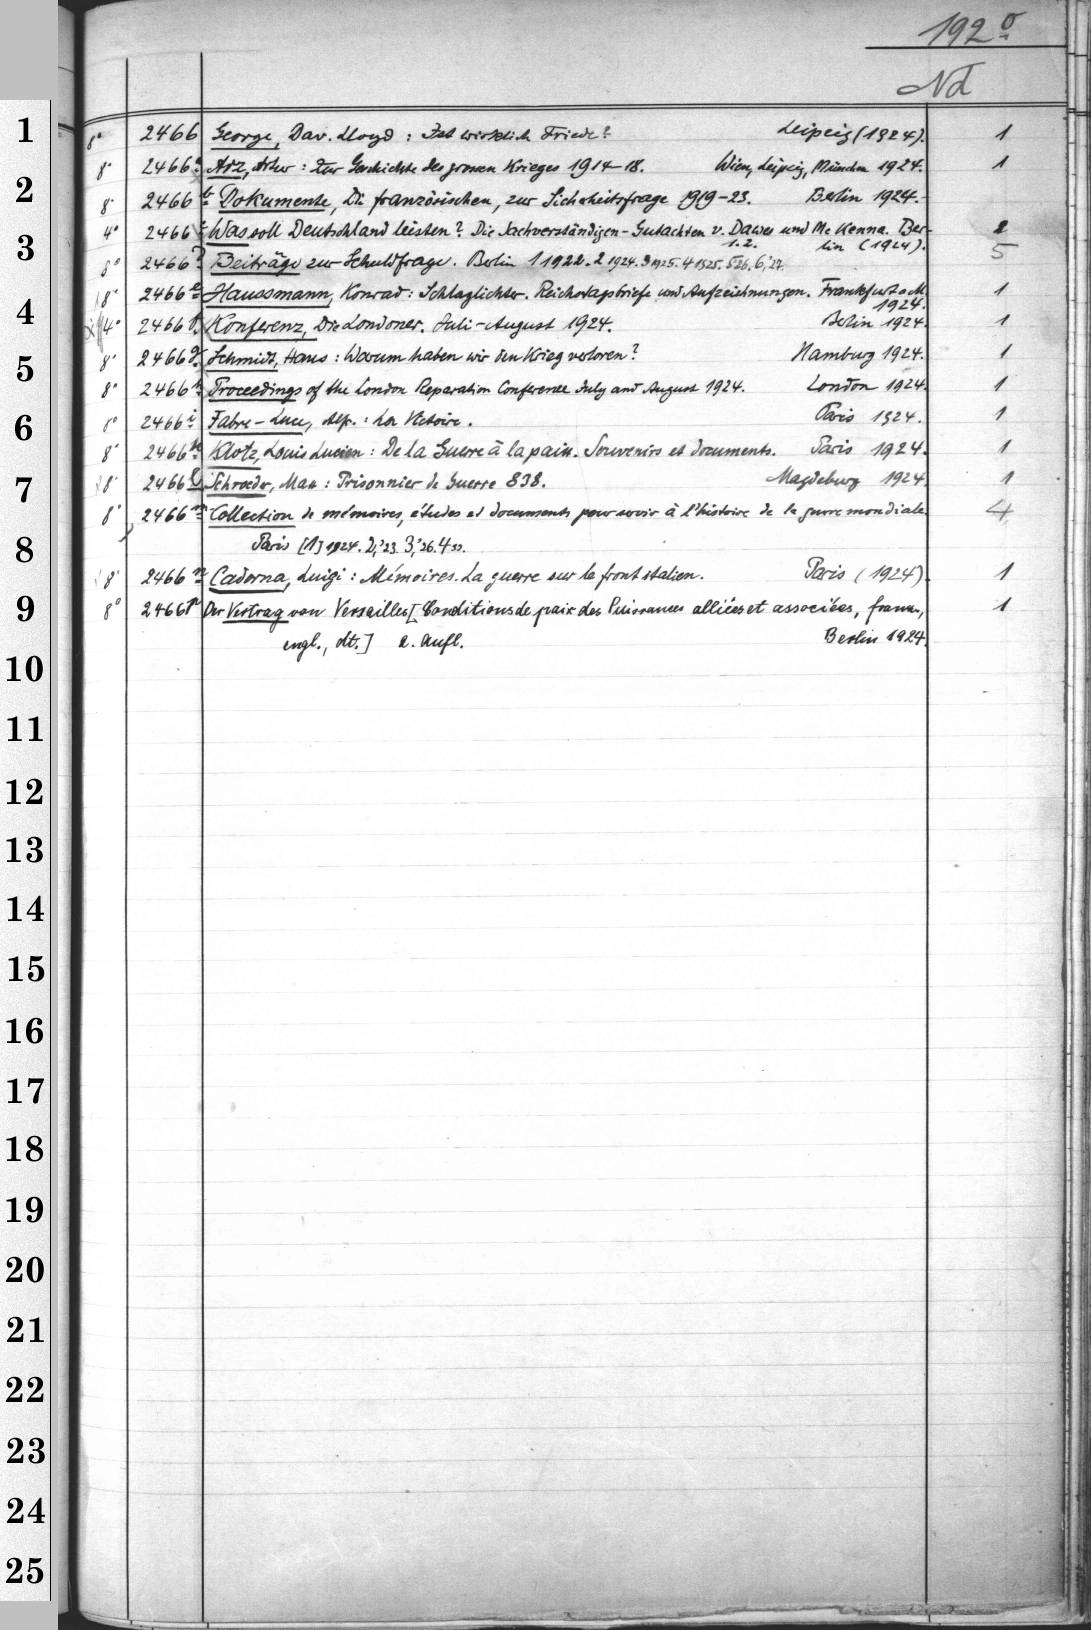 192 o
Nd
1
8° 2466 George, Dav. Lloyd : Ist wirklich Friede? Leipzig (1924). 1
8° 2466 a Arz, Artur : Zur Geschichte des grossen Krieges 1914-18. Wien, Leipzig, München 1924. 1
2
8° 2466 b Dokumente, Die französischen, zur Sicherheitsfrage 1919-23. Berlin 1924.
4° 2466 c Was soll Deutschland leisten? Die Sachverständigen-Gutachten v. Dawes und Mc Kenna. Ber- 2
3
1.2. lin (1924). 5
8° 2466 d Beiträge zur Schuldfrage. Berlin 1 1922. 2 1924. 3 1925. 4 1925. 5 26. 6,'27.
8° 2466 e Haussmann, Konrad : Schlaglichter. Reichstagsbriefe und Aufzeichnungen. Frankfurt a M. 1
1924.
4
4° 2466 f Konferenz, Die Londoner. Juli-August 1924. Berlin 1924. 1
8° 2466 g Schmidt, Hans : Warum haben wir den Krieg verloren? Hamburg 1924. 1
5
8° 2466 h Proceedings of the London Reparation Conference July and August 1924. London 1924. 1
8° 2466 i Fabre-Luce, Alf. : La Victoire. Paris 1924. 1
6
8° 2466 k Klotz, Louis Lucien : De la Guerre à la paix. Souvenirs et documents. Paris 1924. 1
8° 2466 l Schroeder, Max : Prisonnier de Guerre 838. Magdeburg 1924. 1
7
8° 2466 m Collection de mémoires, études et documents pour servir à l'histoire de la guerre mondiale. 4
8
Paris [1] 1924. 2,'23. 3,'26. 4 30.
8° 2466 n Cadorna, Luigi : Mémoires. La guerre sur le front italien. Paris (1924). 1
9
8° 2466 p Der Vertrag von Versailles [Conditions de paix des Puissances alliées et associées, franz., 1
engl., dt.] 2. Aufl. Berlin 1924.
10
11
12
13
14
15
16
17
18
19
20
21
22
23
24
25